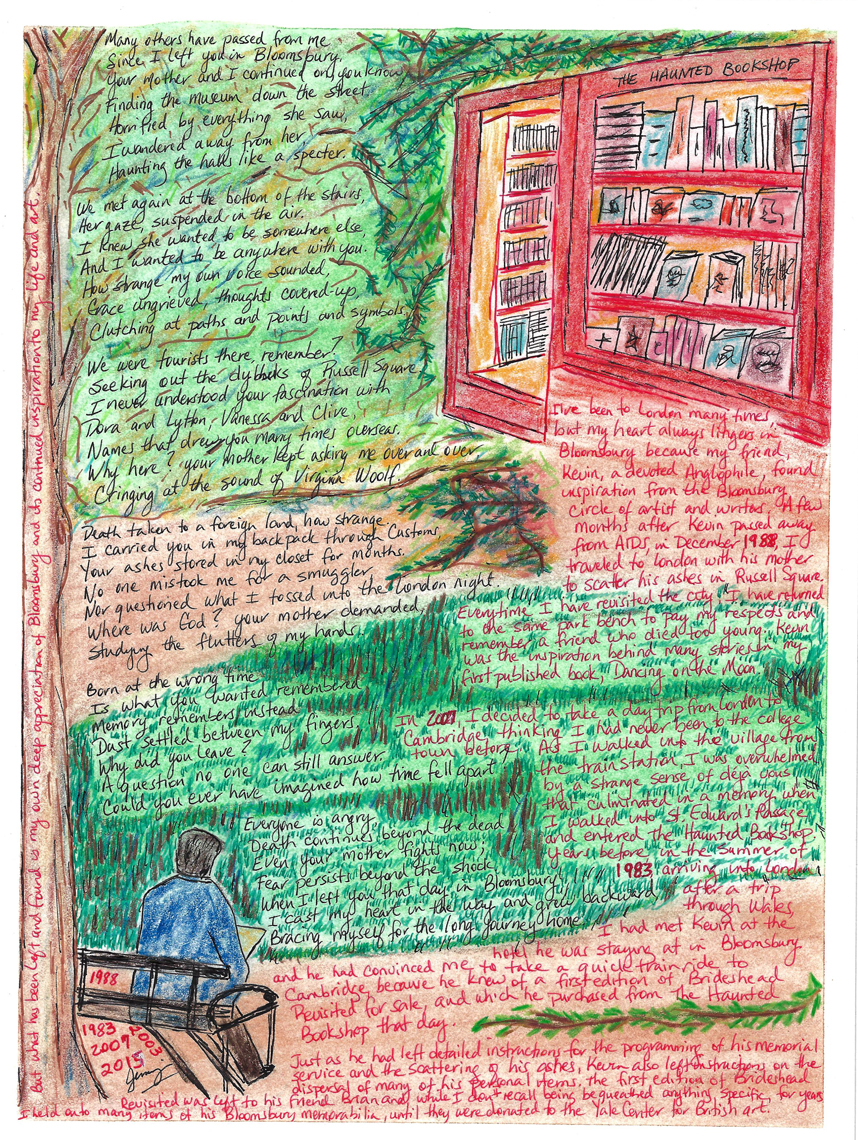 Many others have passed from me
Since I left you in Bloomsbury,
Your mother and I continued on, you know
Finding the museum down the street
Horrified by everything she saw,
I wandered away from her
Haunting the halls like a specter.
We met again at the bottom of the stairs
Her gaze, suspended in the air.
I knew she wanted to be somewhere else
And I wanted to be anywhere with you.
How strange my own voice sounded,
Grace ungrieved, thoughts covered-up
Clutching at paths and points and symbols,
We were tourists there remember?
Seeking out the daybooks of Russell Square,
I never understood your fascination with
Dora and Lytton, Vanessa and Clive,
Names that drew you many times overseas.
Why here? your mother kept asking me over and over,
Cringing at the sound of Virginia Woolf.
Death taken to a foreign land, how strange.
I carried you in my backpack through Customs,
Your ashes stored in my closet for months.
No one mistook me for a smuggler
Nor questioned what I tossed into the London night.
Where was God? your mother demanded,
Studying the flutters of my hands.
Born at the wrong time
Is what you wanted remembered
Memory remembers instead
Dust settled between my fingers,
Why did you leave?
A question no one can still answer.
Could you ever have imagined how time fell apart?
Everyone is angry
Death continues beyond the dead
Even your mother fights now,
Fear persists beyond the shock
When I left you that day in Bloomsbury
I cast my heart in the way and grew backward,
Bracing myself for the long journey home.
THE HAUNTED BOOKSHOP
I've been to London many times
but my heart always lingers in
Bloomsbury because my friend,
Kevin, a devoted Anglophile, found
inspiration from the Bloomsbury
Circle of artist and writers. A few
months after Kevin passed away
from AIDS, in December 1988, I
traveled to London with his mother
to scatter his ashes in Russell Square.
Everytime I have revisited the city, I have returned
to the same park bench to pay my respects and
remember a friend who died too young. Kevin
was the inspiration behind many stories in my
first published book, Dancing on the Moon.
In 2009, I decided to take a day trip from London to
Cambridge, thinking I had never been to the college
town before. As I walked into the village from
the train station, I was overwhelmed
by a strange sense of déja vous
that culminated in a memory when
I walked into St. Edward's Passage
and entered the Haunted Bookshop.
Years before in the summer of
1983, arriving into London
after a trip
through Wales,
I had met Kevin at the
hotel he was staying at in Bloomsbury
and he had convinced me to take a quick train ride to
Cambridge, because he knew of a first edition of Brideshead
Revisited for sale, and which he purchased from The Haunted
Bookshop that day.
Just as he had left detailed instructions for the programming of his memorial
service and the scattering of his ashes, Kevin also left instructions on the
dispersal of many of his personal items. The first edition of Brideshead
Revisited was left to his friend Brian and while I don't recall being bequeathed anything specific, for years
I held onto many items of his Bloomsbury memorabilia, until they were donated to the Yale Center for British Art.
but what has been left and found is my own deep appreciation of Bloomsbury and its continued inspiration to my life and art.
1988
1983
2003
2009
2015